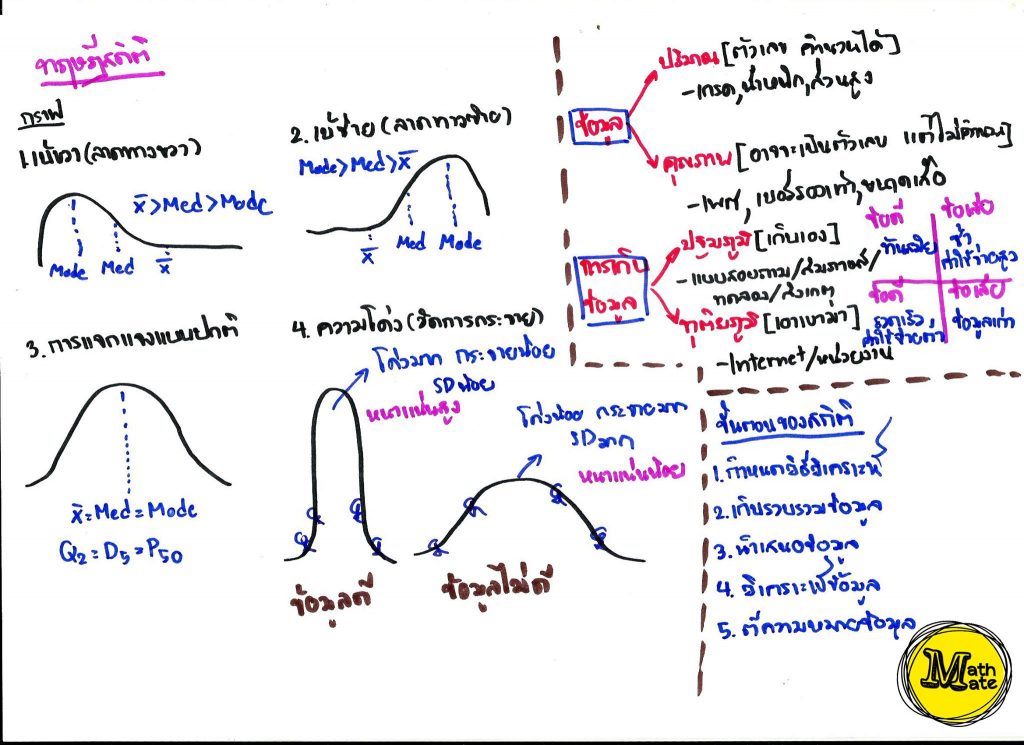 ทฤษฎีสถิติ
กราฟ
1. เบ้ขวา (ลาดทางขวา)
x̄ > Med > Mode
Mode Med x̄
2. เบ้ซ้าย (ลาดทางซ้าย)
Mode > Med > x̄
x̄ Med Mode
3. การแจกแจงแบบปกติ
x̄ = Med = Mode
Q₂ = D₅ = P₅₀
4. ความโด่ง (วัดการกระจาย)
โด่งมาก กระจายน้อย
SD น้อย
หนาแน่นสูง
โด่งน้อย กระจายมาก
SD มาก
หนาแน่นน้อย
ข้อมูลดี
ข้อมูลไม่ดี
ข้อมูล
ปริมาณ [ตัวเลข คำนวนได้]
- เกรด, น้ำหนัก, ส่วนสูง
คุณภาพ [อาจจะเป็นตัวเลข แต่ไม่คำนวน]
- เพศ, เบอร์รองเท้า, ขนาดเสื้อ
การเก็บ
ข้อมูล
ปฐมภูมิ [เก็บเอง]
- แบบสอบถาม/สัมภาษณ์/
ทดลอง/สังเกต
ข้อดี ข้อเสีย
ทันสมัย ช้า
ค่าใช้จ่ายสูง
ทุติยภูมิ [เอาเขามา]
- Internet/หน่วยงาน
ข้อดี ข้อเสีย
รวดเร็ว ข้อมูลเก่า
ค่าใช้จ่ายต่ำ
ขั้นตอนของสถิติ
1. กำหนดวิธีวิเคราะห์
2. เก็บรวบรวมข้อมูล
3. นำเสนอข้อมูล
4. วิเคราะห์ข้อมูล
5. ตีความหมายข้อมูล
Math
Mate